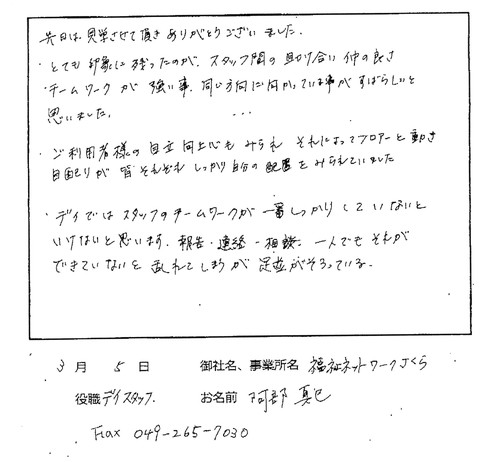 先日は見学させて頂きありがとうございました。
・とても印象に残ったのが、スタッフ間の助け合い 仲の良さ
・チームワークが強い事、同じ方向に向かっている事がすばらしいと
思いました。
・ご利用者様の自立 向上心もみられ それによってフロアーと動き
目配りが 皆それぞれ しっかり自分の配置をみられていました
・デイではスタッフのチームワークが一番しっかりしていないと
いけないと思います。報告・連絡・相談、一人でもそれが
できていないと 乱れてしまうが 足並がそろっている。
3月5日 御社名、事業所名 福祉ネットワークさくら
役職 デイスタッフ. お名前 阿部 真巳
Fax 049-265-7030